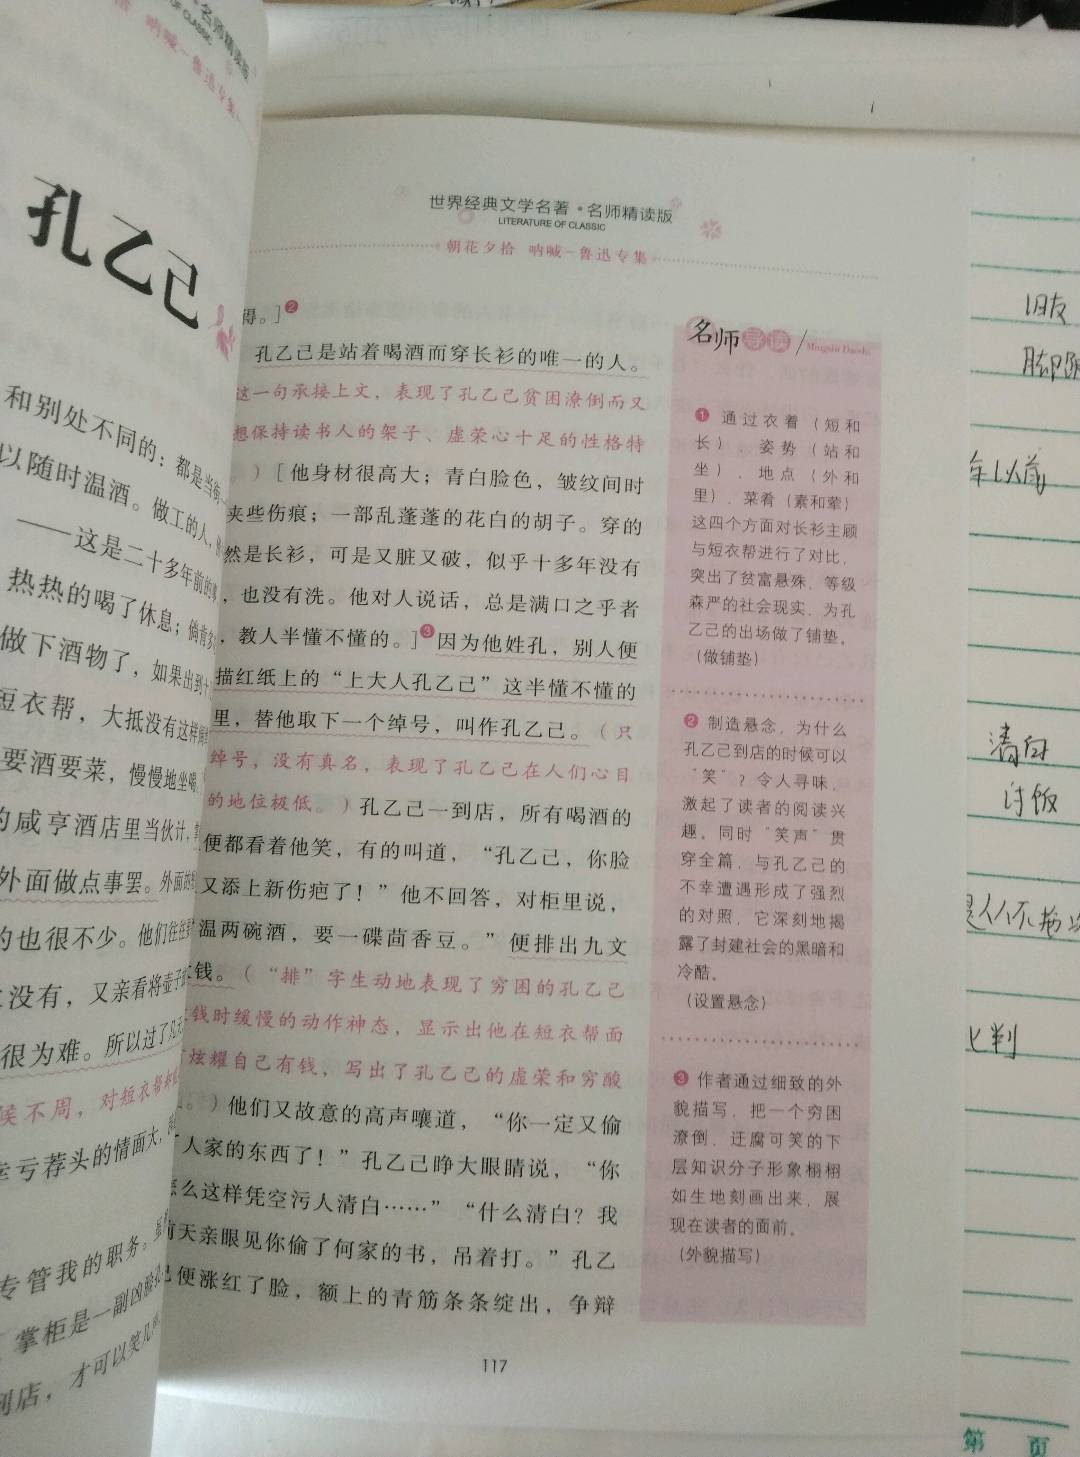 名师精读版
OF CLASSIC
呐喊－鲁迅专集
孔乙己
和别处不同的：都是当街
以随时温酒。做工的人，
——这是二十多年前的事
热热的喝了休息；倘肯多
做下酒物了，如果出到十
短衣帮，大抵没有这样阔
要酒要菜，慢慢地坐喝
的咸亨酒店里当伙计，掌
外面做点事罢。外面的
的也很不少。他们往往要
没有，又亲看将壶子
很为难。所以过了几天
候不周，对短衣帮
幸亏荐头的情面大，
专管我的职务。虽
掌柜是一副凶脸孔
到店，才可以笑几
世界经典文学名著·名师精读版
LITERATURE OF CLASSIC
朝花夕拾 呐喊－鲁迅专集
得。]❷
孔乙己是站着喝酒而穿长衫的唯一的人。
这一句承接上文，表现了孔乙己贫困潦倒而又
想保持读书人的架子、虚荣心十足的性格特
。）[他身材很高大；青白脸色，皱纹间时
夹些伤痕；一部乱蓬蓬的花白的胡子。穿的
然是长衫，可是又脏又破，似乎十多年没有
，也没有洗。他对人说话，总是满口之乎者
，教人半懂不懂的。]❸因为他姓孔，别人便
描红纸上的“上大人孔乙己”这半懂不懂的
里，替他取下一个绰号，叫作孔乙己。（只
绰号，没有真名，表现了孔乙己在人们心目
的地位极低。）孔乙己一到店，所有喝酒的
便都看着他笑，有的叫道，“孔乙己，你脸
又添上新伤疤了！”他不回答，对柜里说，
温两碗酒，要一碟茴香豆。”便排出九文
钱。（“排”字生动地表现了穷困的孔乙己
钱时缓慢的动作神态，显示出他在短衣帮面
炫耀自己有钱，写出了孔乙己的虚荣和穷酸
。）他们又故意的高声嚷道，“你一定又偷
了人家的东西了！”孔乙己睁大眼睛说，“你
怎么这样凭空污人清白……”“什么清白？我
前天亲眼见你偷了何家的书，吊着打。”孔乙
己便涨红了脸，额上的青筋条条绽出，争辩
117
名师导读
Mingshi Daodu
❶ 通过衣着（短和
长）、姿势（站和
坐）、地点（外和
里）、菜肴（素和荤）
这四个方面对长衫主顾
与短衣帮进行了对比，
突出了贫富悬殊、等级
森严的社会现实，为孔
乙己的出场做了铺垫。
（做铺垫）
❷ 制造悬念，为什么
孔乙己到店的时候可以
“笑”？令人寻味，
激起了读者的阅读兴
趣。同时“笑声”贯
穿全篇，与孔乙己的
不幸遭遇形成了强烈
的对照，它深刻地揭
露了封建社会的黑暗和
冷酷。
（设置悬念）
❸ 作者通过细致的外
貌描写，把一个穷困
潦倒、迂腐可笑的下
层知识分子形象栩栩
如生地刻画出来，展
现在读者的面前。
（外貌描写）
旧友
清白
讨饭
判
第 页